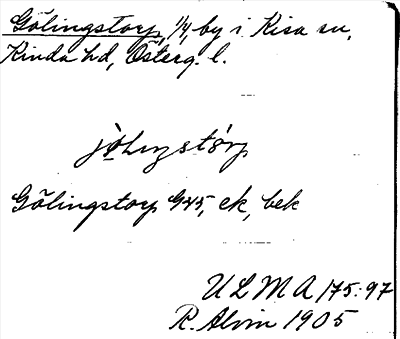 Gölingstorp, 1/4, by i Kisa sn,
Kinda hd, Österg. l.
Gölingstorp G45, ek, bek
ULMA 175:97
R. Alvin 1905